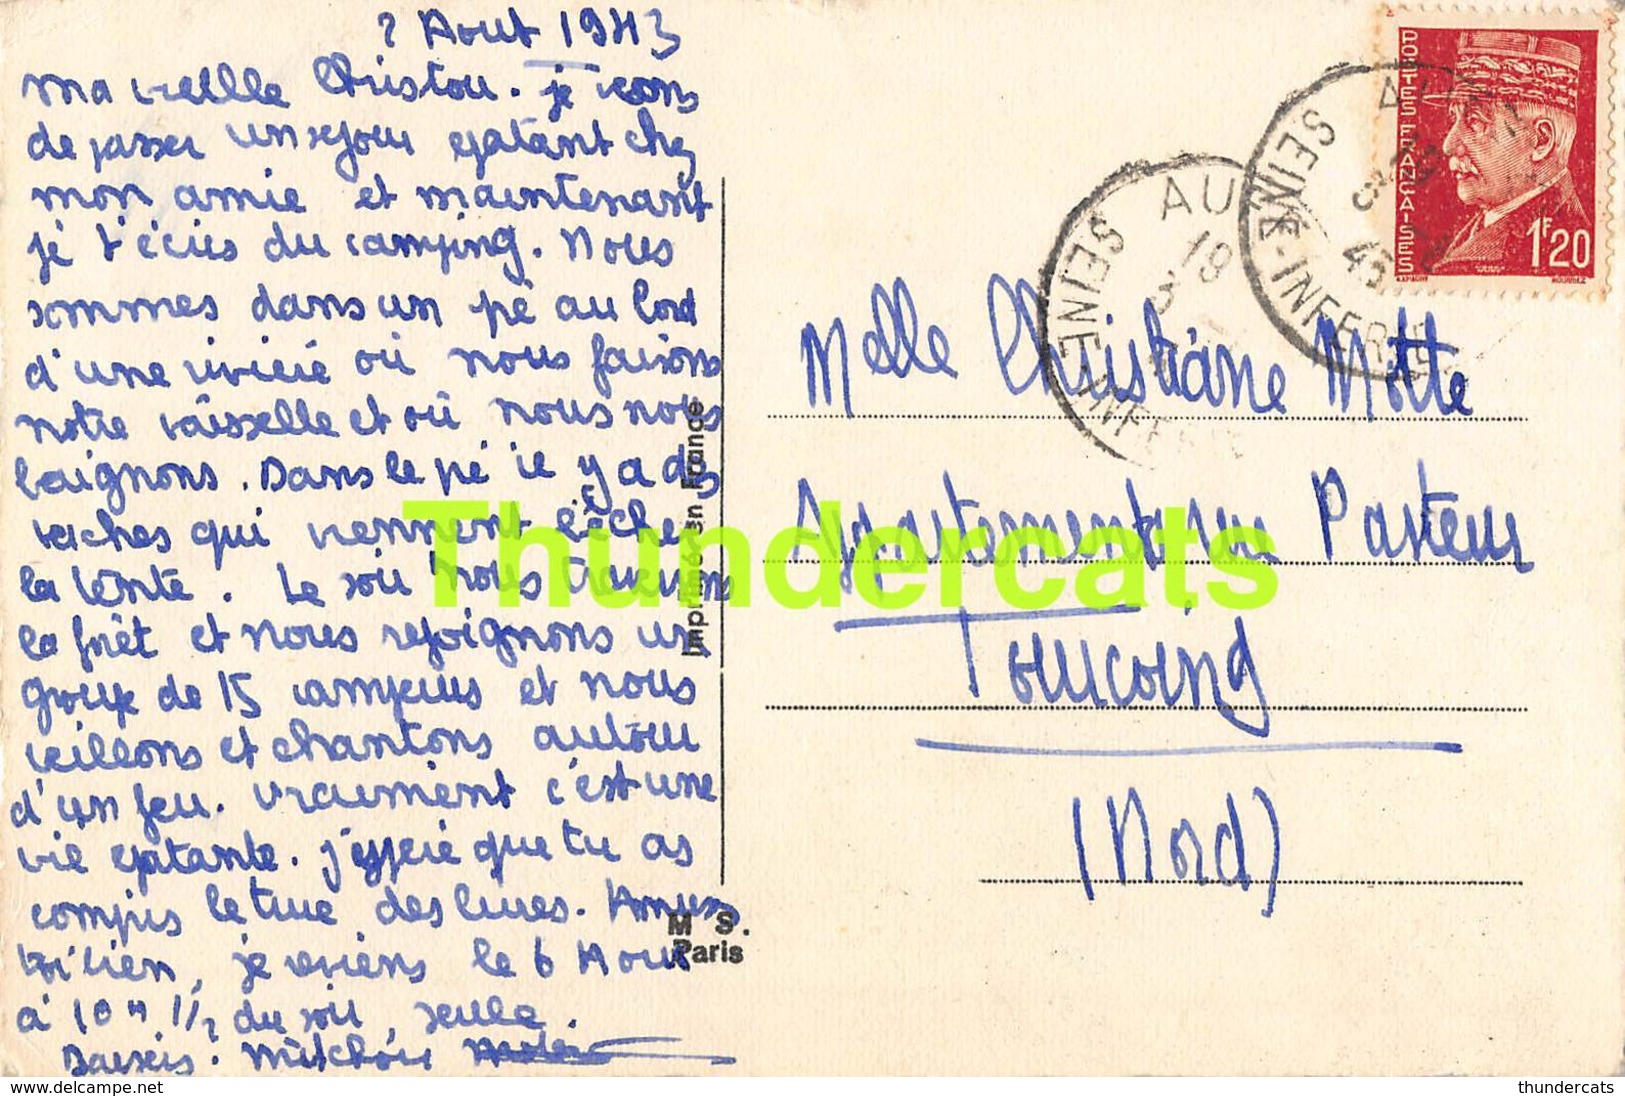 2 Aout 1943
ma vieille Christou. je viens
de passer un sejour epatant chez
mon amie et maintenant
je t'écris du camping. Nous
sommes dans un pré au bord
d'une rivière où nous faisons
notre vaisselle et où nous nous
baignons. Dans le pé il y a des
vaches qui viennent lécher
la tente. Le soir nous traversons
la forêt et nous rejoignons un
groupe de 15 campeurs et nous
veillons et chantons autour
d'un feu. Vraiment c'est une
vie epatante. J'espère que tu as
compris le truc des livres. Amuses
toi bien, je reviens le 6 Aout
à 10 H 1/2 du soir, seule.
Baisers.
Imprimé en France
M S.
Paris
POSTES FRANÇAISES
1F20
AU
19
SEINE-INFERIE
SEINE-INFERIE
45
Melle Christiane Motte
Appartement, rue Pasteur
Tourcoing
(Nord)
Thundercats
thundercats